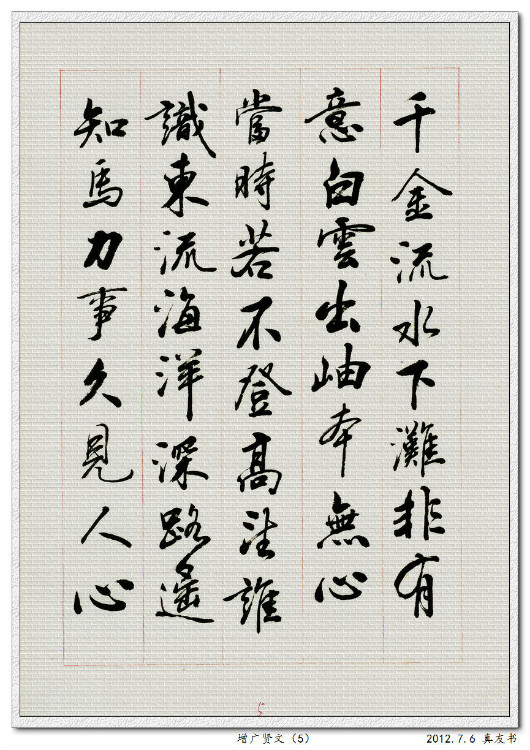 千金流水下灘非有
意白雲出岫本無心
當時若不登高望誰
識東流海洋深路遙
知馬力事久見人心
5
增广贤文（5）
2012.7.6 真友书